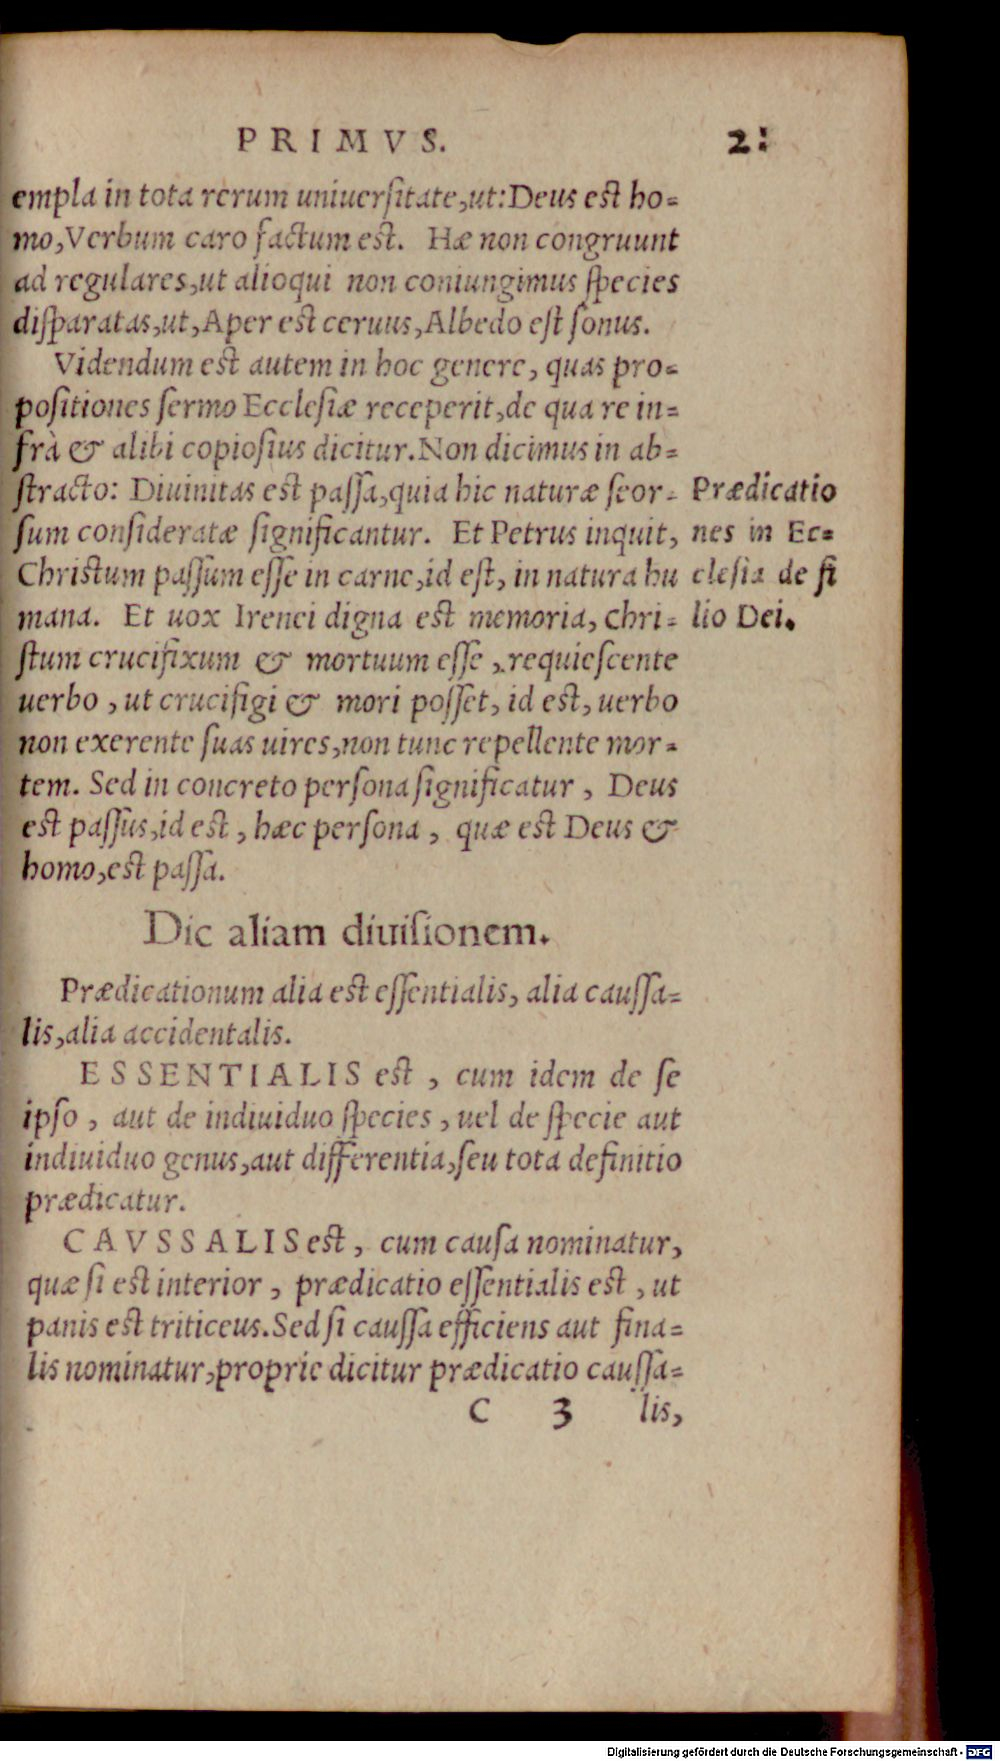 PRIMVS. 21
empla in tota rerum uniuersitate, ut: Deus est ho=
mo, Verbum caro factum est. Hæ non congruunt
ad regulares, ut alioqui non coniungimus species
disparatas, ut, Aper est ceruus, Albedo est sonus.
Videndum est autem in hoc genere, quas pro=
positiones sermo Ecclesiæ receperit, de qua re in=
frà & alibi copiosius dicitur. Non dicimus in ab=
stracto: Diuinitas est passa, quia hic naturæ seor=
sum consideratæ significantur. Et Petrus inquit,
Christum passum esse in carne, id est, in natura hu
mana. Et uox Irenei digna est memoria, Chri=
stum crucifixum & mortuum esse, requiescente
uerbo, ut crucifigi & mori posset, id est, uerbo
non exerente suas uires, non tunc repellente mor=
tem. Sed in concreto persona significatur, Deus
est passus, id est, hæc persona, quæ est Deus &
homo, est passa.
Prædicatio
nes in Ec=
clesia de fi
lio Dei.
Dic aliam diuisionem.
Prædicationum alia est essentialis, alia caussa=
lis, alia accidentalis.
ESSENTIALIS est, cum idem de se
ipso, aut de indiuiduo species, uel de specie aut
indiuiduo genus, aut differentia, seu tota definitio
prædicatur.
CAVSSALIS est, cum causa nominatur,
quæ si est interior, prædicatio essentialis est, ut
panis est triticeus. Sed si caussa efficiens aut fina=
lis nominatur, proprie dicitur prædicatio caussa=
C 3 lis,
Digitalisierung gefördert durch die Deutsche Forschungsgemeinschaft - DFG